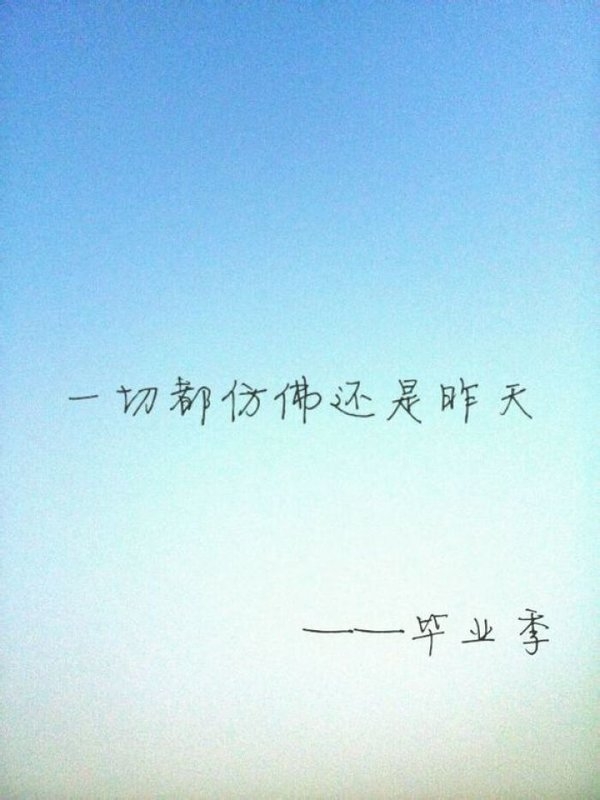 一切都仿佛还是昨天
——毕业季